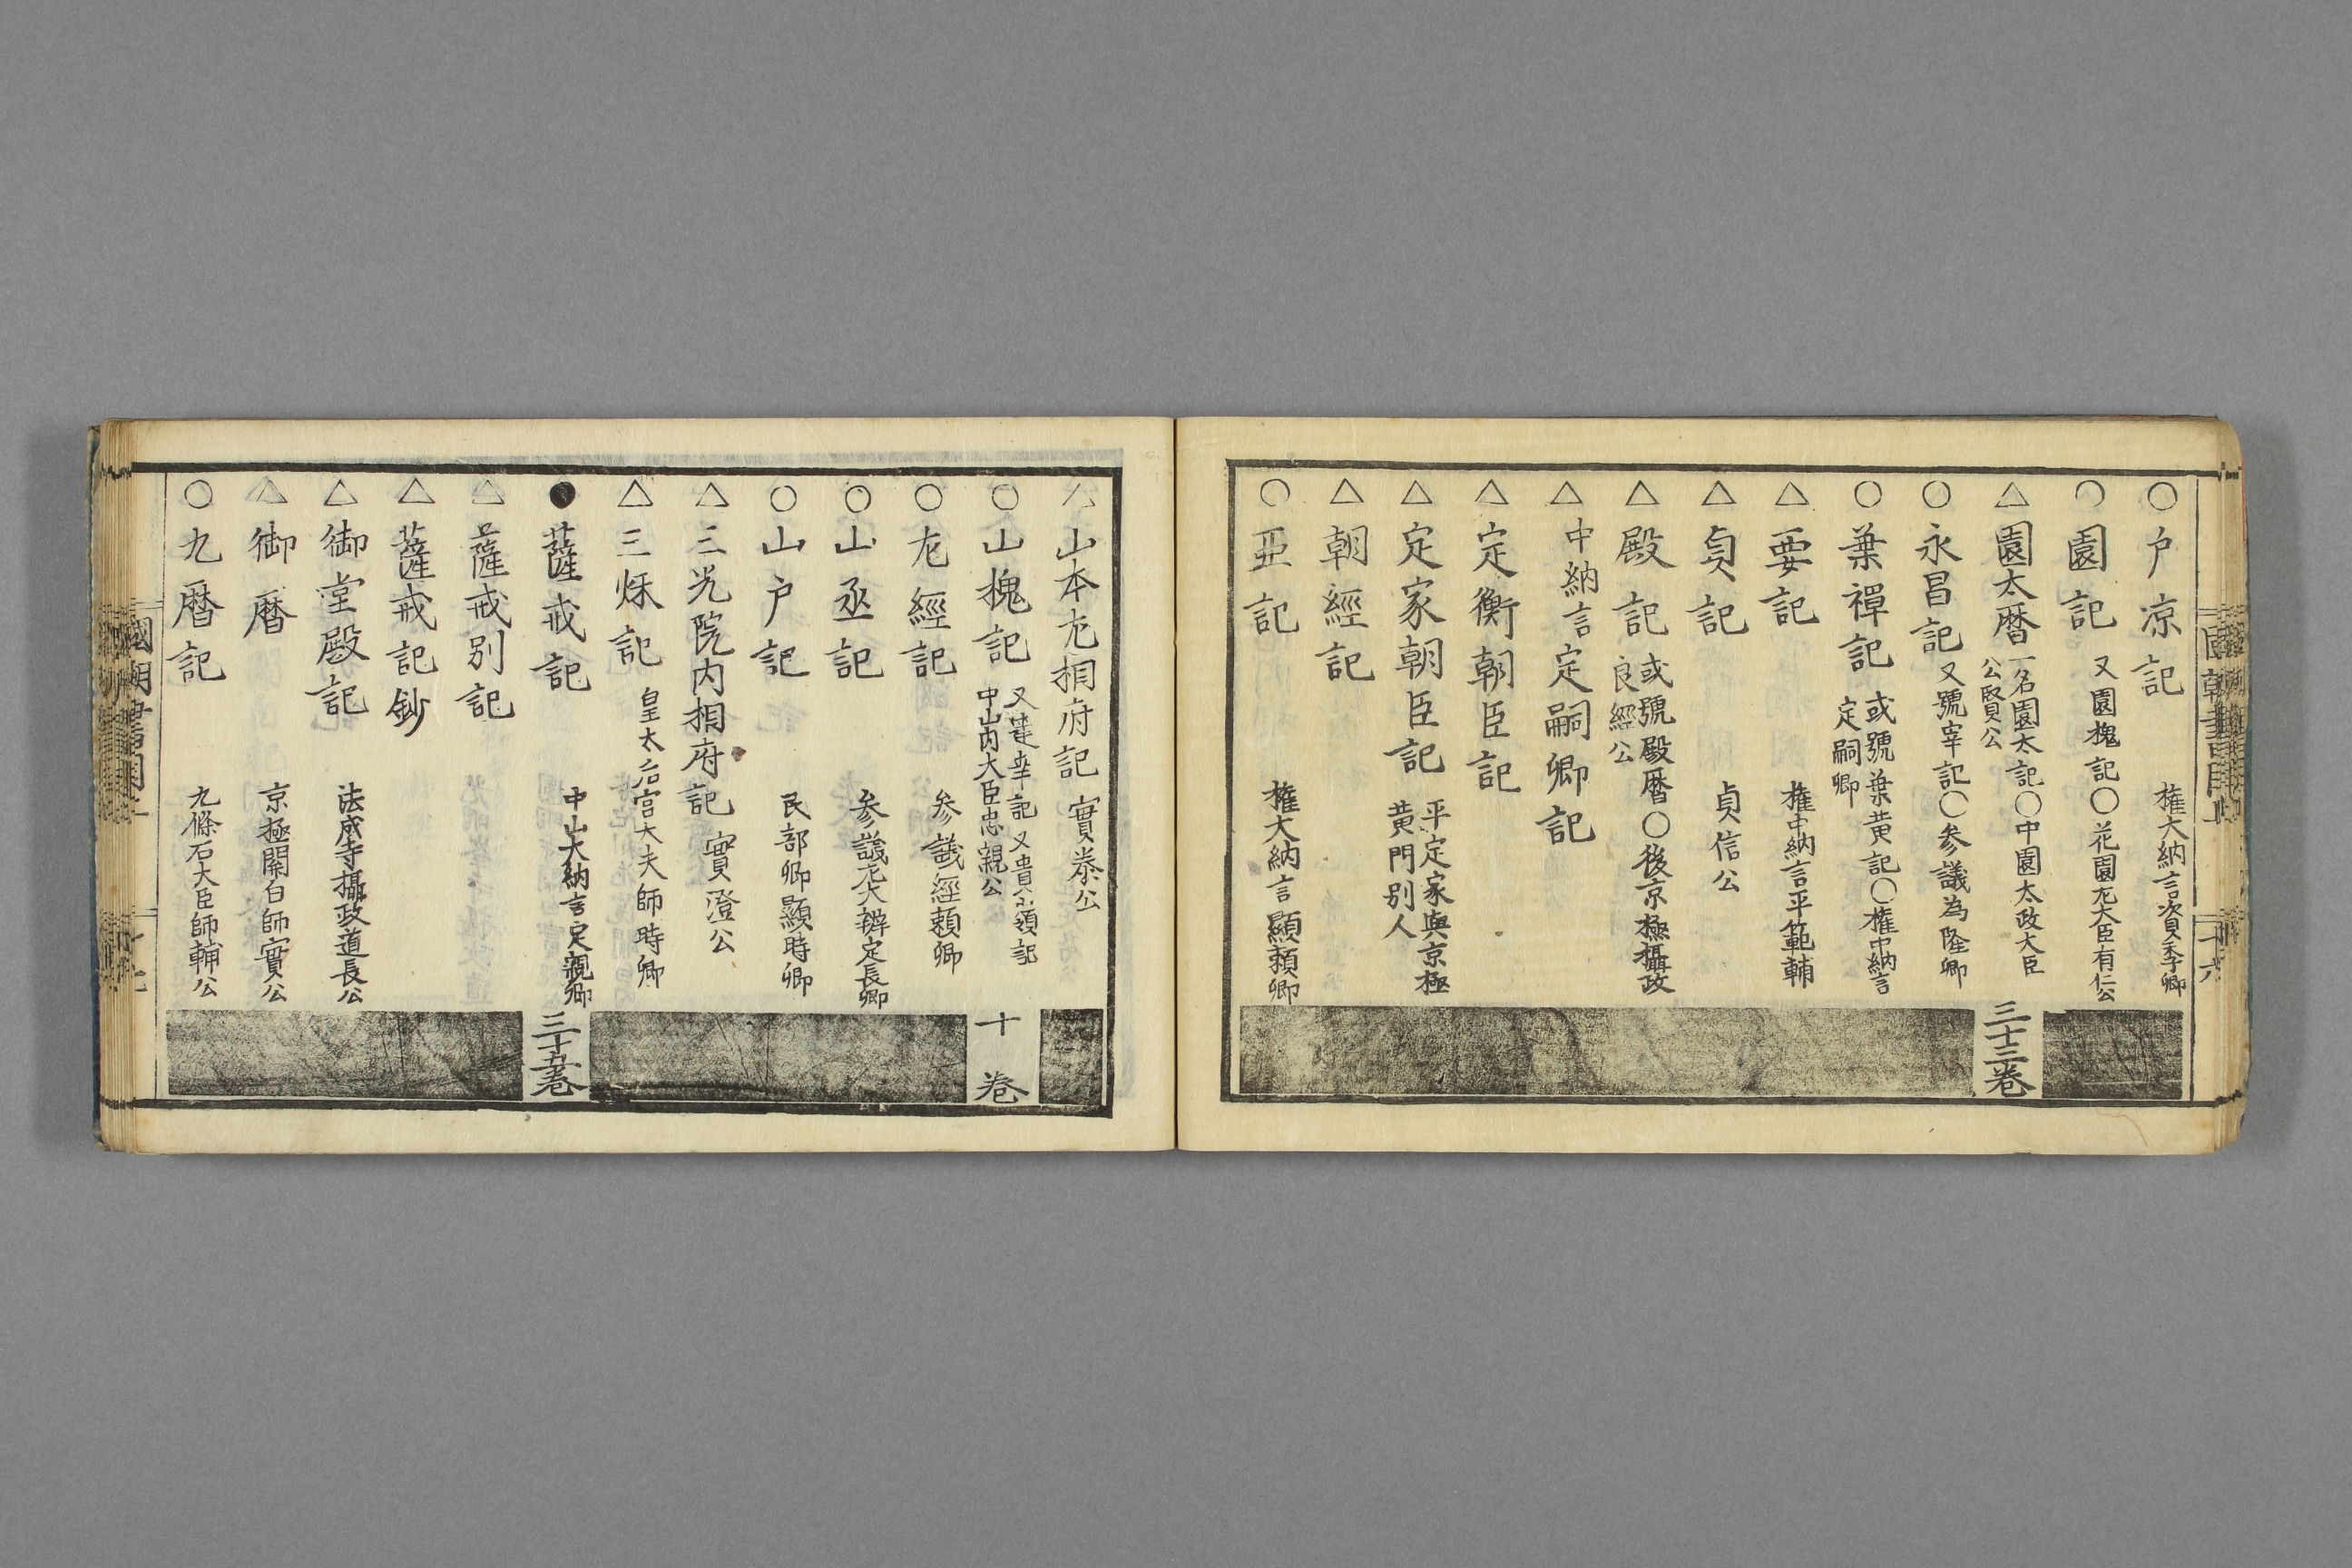 ○戸凉記 権大納言資季卿
○園記 又園槐記○花園左大臣有仁公
△園太暦 一名園太記○中園太政大臣
公賢公 三十三巻
○永昌記 又號宰記○参議為隆卿
○葉禪記 或號葉黄記○権中納言
定嗣卿
△要記 権中納言平範輔
△貞記 貞信公
△殿記 或號殿暦○後京極攝政
良經公
△中納言定嗣卿記
△定衡朝臣記
△定家朝臣記 平定家與京極
黄門別人
△朝經記
○亞記 権大納言顯頼卿
△山本左相府記 實泰公
○山槐記 又達幸記 又貴嶺記
中山内大臣忠親公 十巻
○左經記 参議經頼卿
○山丞記 参議左大辨定長卿
○山戸記 民部卿顯時卿
△三光院内相府記 實澄公
△三秌記 皇太后宮大夫師時卿
●薩戒記 中山大納言定親卿 三十五巻
△薩戒別記
△薩戒記鈔
△御堂殿記 法成寺攝政道長公
△御暦 京極關白師實公
○九暦記 九條右大臣師輔公